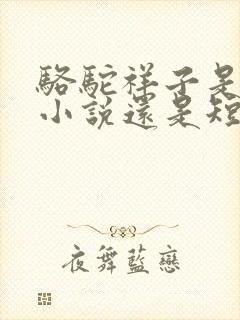 駱駝祥子是
小說還是短
夜舞藍戀